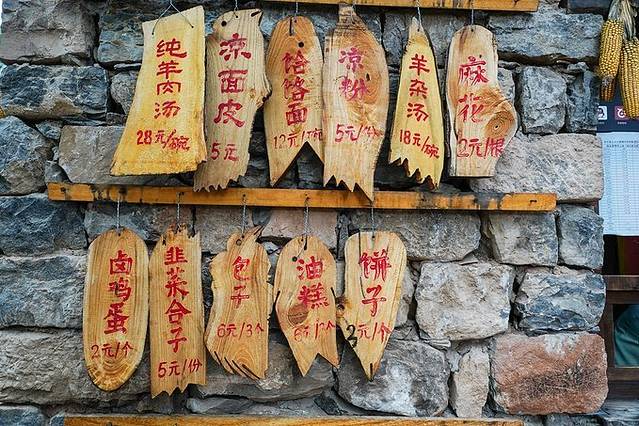 纯羊肉汤
28元/碗
凉面皮
5元
饸饹面
12元/碗
凉粉
5元/份
羊杂汤
18元/碗
麻花
2元/根
卤鸡蛋
2元/个
韭菜合子
5元/个
包子
6元/3个
油糕
饼子
元/个